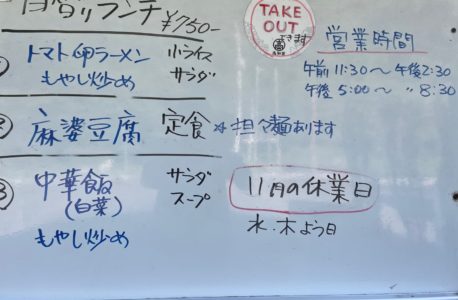 日替りランチ
¥750-
トマト卵ラーメン 小ライス
もやし炒め サラダ
② 麻婆豆腐 定食 ※担々麺あります
③ 中華飯 サラダ
(白菜) スープ
もやし炒め
TAKE
OUT
できます
営業時間
午前11:30〜午後2:30
午後5:00〜 〃 8:30
11月の休業日
水・木よう日